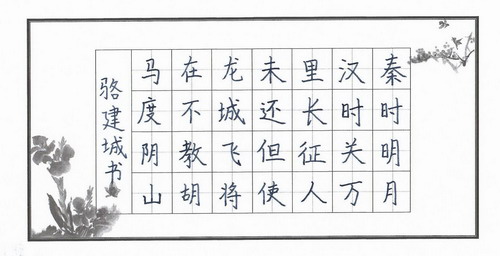 秦时明月
汉时关万
里长征人
未还但使
龙城飞将
在不教胡
马度阴山
骆建城书